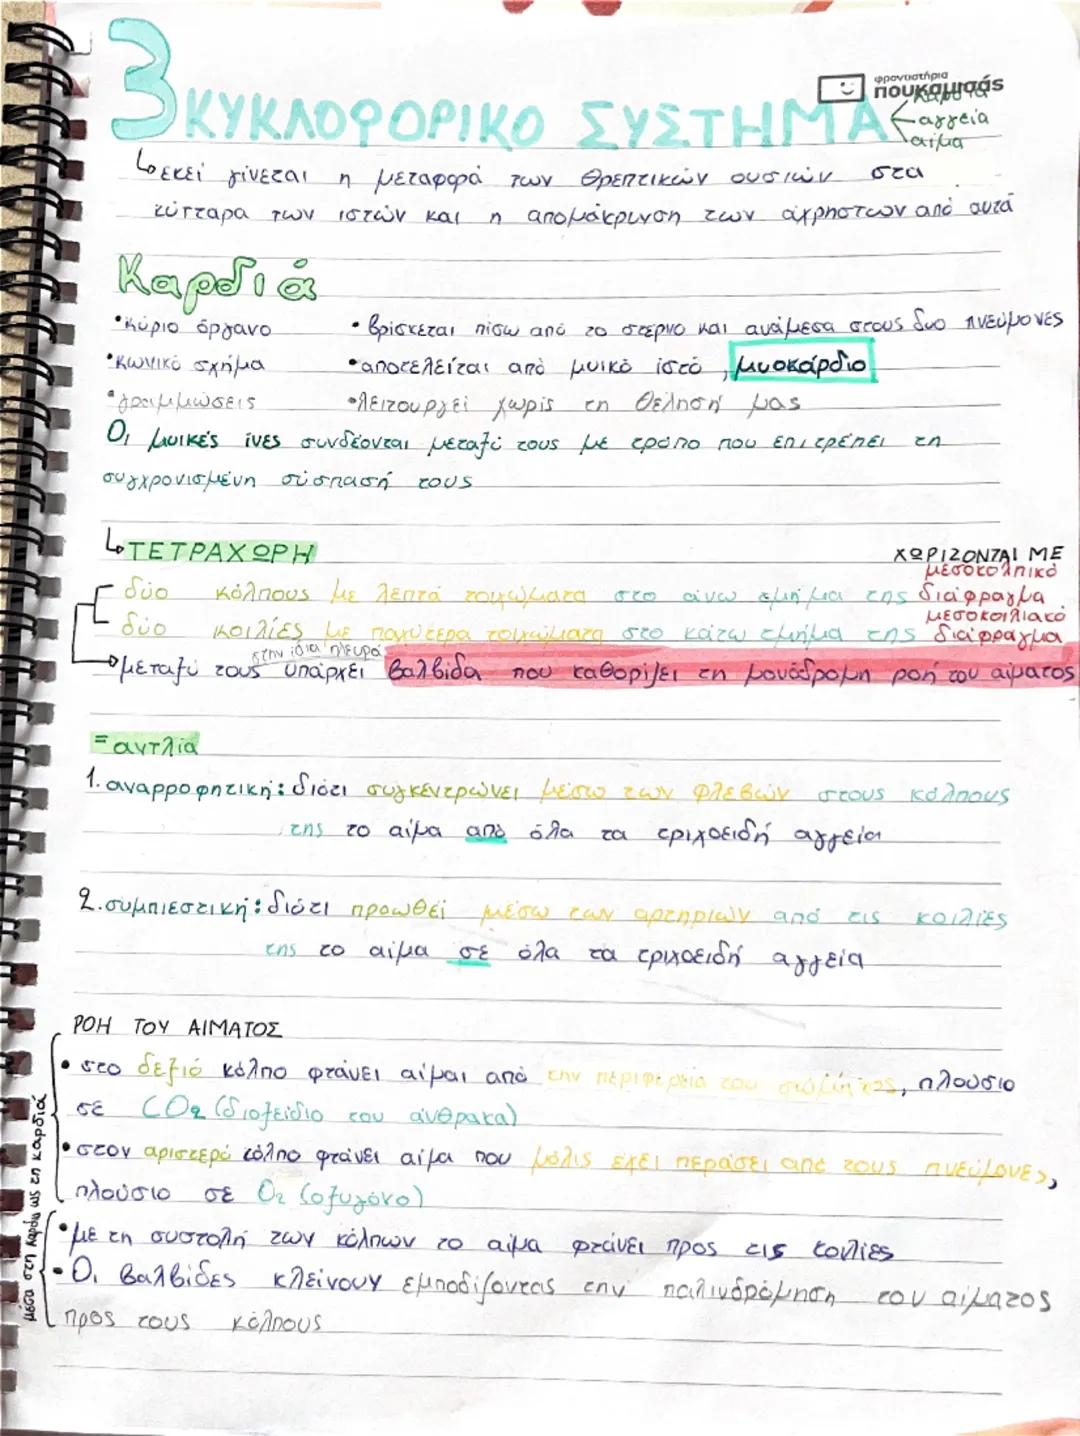 3 ΚΥΚΛΟΦΟΡΙΚΟ ΣΥΣΤΗΜΑ
φροντιστήρια
πουκαμισάς
καρδιά
αγγεία
αίμα
εκεί γίνεται η μεταφορά των θρεπτικών ουσιών στα
κύτταρα των ιστών και η απομάκρυνση των άχρηστων από αυτά
Καρδιά
•κύριο όργανο •βρίσκεται πίσω από το στέρνο και ανάμεσα στους δυο πνεύμονες
•κωνικό σχήμα •αποτελείται από μυικό ιστό, μυοκάρδιο
•γραμμώσεις •λειτουργεί χωρίς τη θέλησή μας
Οι μυικές ίνες συνδέονται μεταξύ τους με τρόπο που επιτρέπει τη
συγχρονισμένη σύσπασή τους
ΤΕΤΡΑΧΩΡΗ
ΧΩΡΙΖΟΝΤΑΙ ΜΕ
μεσοκολπικό
δύο κόλπους με λεπτά τοιχώματα στο άνω τμήμα της διάφραγμα
μεσοκοιλιακό
δύο κοιλίες με παχύτερα τοιχώματα στο κάτω τμήμα της διάφραγμα
στην ίδια πλευρά
μεταξύ τους υπάρχει βαλβίδα που καθορίζει τη μονόδρομη ροή του αίματος
=αντλία
1.αναρροφητική: διότι συγκεντρώνει μέσω των φλεβών στους κόλπους
της το αίμα από όλα τα τριχοειδή αγγεία
2.συμπιεστική: διότι προωθεί μέσω των αρτηριών από τις κοιλίες
της το αίμα σε όλα τα τριχοειδή αγγεία
ΡΟΗ ΤΟΥ ΑΙΜΑΤΟΣ
•στο δεξιό κόλπο φτάνει αίμαι από την περιφέρεια του σώματος, πλούσιο
σε CO2 (διοξείδιο του άνθρακα)
•στον αριστερό κόλπο φτάνει αίμα που μόλις έχει περάσει από τους πνεύμονες,
πλούσιο σε O2 (οξυγόνο)
•με τη συστολή των κόλπων το αίμα φτάνει προς τις κοιλίες
•Οι βαλβίδες κλείνουν εμποδίζοντας την παλινδρόμηση του αίματος
προς τους κόλπους